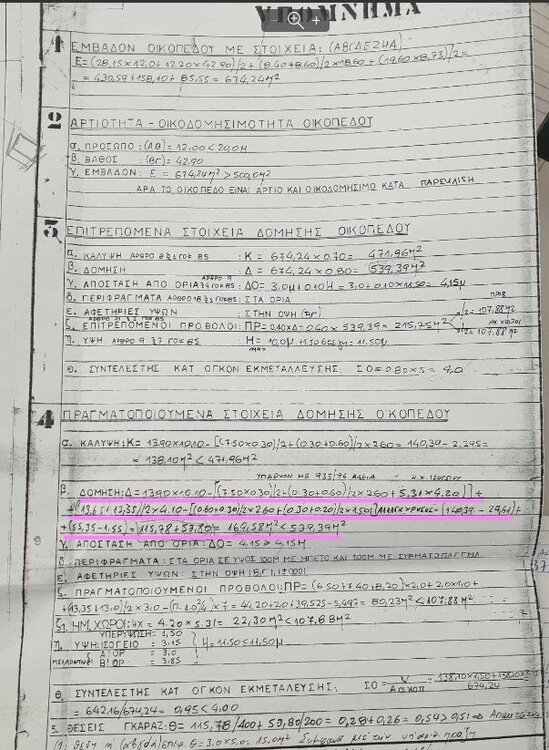 ΥΠΟΜΝΗΜΑ
1 ΕΜΒΑΔΟΝ ΟΙΚΟΠΕΔΟΥ ΜΕ ΣΤΟΙΧΕΙΑ: (ΑΒΓΔΕΖΗΑ)
Ε=(28,15×12,0+12,20×42,90)/2+(8,40+8,60)/2×18,60+(19,60×8,73)/2=
= 430,59+158,10+85,55=674,24μ2
2 ΑΡΤΙΟΤΗΤΑ-ΟΙΚΟΔΟΜΗΣΙΜΟΤΗΤΑ ΟΙΚΟΠΕΔΟΥ
α. ΠΡΟΣΩΠΟ: (ΑΒ)=12.00<20,0μ
β. ΒΑΘΟΣ: (ΒΓ)=42.90
γ. ΕΜΒΑΔΟΝ: Ε=674,24μ2>500,0μ2
ΑΡΑ ΤΟ ΟΙΚΟΠΕΔΟ ΕΙΝΑΙ ΑΡΤΙΟ ΚΑΙ ΟΙΚΟΔΟΜΗΣΙΜΟ ΚΑΤΑ ΠΑΡΕΚΛΙΣΗ
3 ΕΠΙΤΡΕΠΟΜΕΝΑ ΣΤΟΙΧΕΙΑ ΔΟΜΗΣΗΣ ΟΙΚΟΠΕΔΟΥ
α. ΚΑΛΥΨΗ ΑΡΘΡΟ 8 ΓΟΚ 85 : Κ = 674,24×0.70= 471,96μ2
β. ΔΟΜΗΣΗ : Δ = 674,24×0.80= 539,39μ2
γ. ΑΠΟΣΤΑΣΗ ΑΠΟ ΟΡΙΑ ΑΡΘΡΟ 9 ΓΟΚ 85: ΔΟ= 3.0μ+0.10Η=3,0+0.10×11,50=4,15μ
δ. ΠΕΡΙΦΡΑΓΜΑΤΑ ΑΡΘΡΟ 18 ΓΟΚ 85: ΣΤΑ ΟΡΙΑ
ε. ΑΦΕΤΗΡΙΕΣ ΥΨΩΝ : ΣΤΗΝ ΟΨΗ (ΒΓ)
ζ. ΕΠΙΤΡΕΠΟΜΕΝΟΙ ΠΡΟΒΟΛΟΙ: ΠΡ=0.40×Δ=0.40×539,39=215,75μ2 /2=107,88μ2
/2=107,88μ2
η. ΥΨΗ ΑΡΘΡΟ 9 §7 ΓΟΚ 85 Η= 10,0μ =11.50μ
max
θ. ΣΥΝΤΕΛΕΣΤΗΣ ΚΑΤ ΟΓΚΟΝ ΕΚΜΕΤΑΛΛΕΥΣΗΣ: ΣΟ=0.80×5=4,0
4 ΠΡΑΓΜΑΤΟΠΟΙΟΥΜΕΝΑ ΣΤΟΙΧΕΙΑ ΔΟΜΗΣΗΣ ΟΙΚΟΠΕΔΟΥ
α. ΚΑΛΥΨΗ: Κ=13.90×10.10-[(7.50×0.30)/2+(0.30+0.60)/2×2.60=140,39-2,295=
= 138,10μ2<471,96μ2
ΥΠΑΡΧΟΝ ΜΕ 935/76 ΑΔΕΙΑ
β. ΔΟΜΗΣΗ: Δ=13.90×10.10-[(7.50×0.30)/2+(0.30+0.60)/2×2.60+5.31×4.20)]+
+[(13,65+13,35)/2×4.10-[(0.60+0.30)/2×2.60+(0.30+0.20)/2×1.50] ΑΛΛΑΓΗ ΧΡΗΣΕΩΣ-(140,39-29,61)+
+(55,35-1.55)=115,78+57,80=169,58μ2<539,39μ2
γ. ΑΠΟΣΤΑΣΗ ΑΠΟ ΟΡΙΑ: ΔΟ=4,15≥4,15μ
δ. ΠΕΡΙΦΡΑΓΜΑΤΑ: ΣΤΑ ΟΡΙΑ ΣΕ ΥΨΟΣ 1.00Μ ΜΕ ΜΠΕΤΟ ΚΑΙ 1.00Μ ΜΕ ΣΥΡΜΑΤΟΠΛΕΓΜΑ
ε. ΑΦΕΤΗΡΙΕΣ ΥΨΩΝ: ΣΤΗΝ ΟΨΗ (ΒΓ), (±0.00)
ζ. ΠΡΑΓΜΑΤΟΠΟΙΟΥΜΕΝΟΙ ΠΡΟΒΟΛΟΙ: ΠΡ=(6.50+7.40+8,20)×2.0+2,0×1,0+
+(13,35+13,0)/2×3.0-=44,20+2,0+39,525-5,497=80,23μ2<107,88μ2
ζ1. ΗΜ. ΧΩΡΟΙ: ΗΧ=4.20×5.31= 22,30μ2<107,88μ2
ΥΠΕΡΥΨΩΣΗ= 1,50
η. ΥΨΗ: ΙΣΟΓΕΙΟ = 3.15 Η=11.50≤11.50μ
ΜΕΛΛΟΝΤΙΚΟΙ Α! ΟΡ = 3,0
Β! ΟΡ = 3.85
θ. ΣΥΝΤΕΛΕΣΤΗΣ ΚΑΤ ΟΓΚΟΝ ΕΚΜΕΤΑΛΛΕΥΣΗΣ: ΣΟ= V = 138,10×1.50+138,10×3.15
674,24
= 642.16/674,24 = 0,95<4.00
5. ΘΕΣΕΙΣ ΓΚΑΡΑΖ: Θ= 115,78/400+53,80/200=0,28+0,26=0,54>0,51